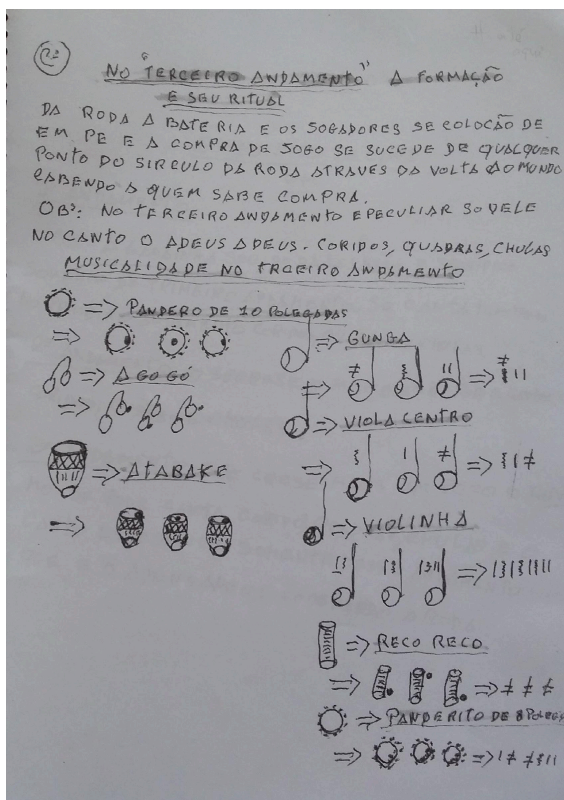 NO "TERCEIRO ANDAMENTO" A FORMAÇÃO
E SEU RITUAL
DA RODA A BATERIA E OS JOGADORES SE COLOCÃO DE
EM PE E A COMPRA DE JOGO SE SUCEDE DE QUALQUER
PONTO DO SIRCULO DA RODA ATRAVES DA VOLTA AO MUNDO
CABENDO A QUEM SABE COMPRA.
OBS: NO TERCEIRO ANDAMENTO E PECULIAR SO DELE
NO CANTO O ADEUS ADEUS. CORIDOS, QUADRAS, CHULAS
MUSICALIDADE NO TRCEIRO ANDAMENTO
PANDERO DE 10 POLEGADAS
GUNGA
AGOGÓ
VIOLA CENTRO
ATABAKE
VIOLINHA
RECO RECO
PANDERITO DE 8 POLEG